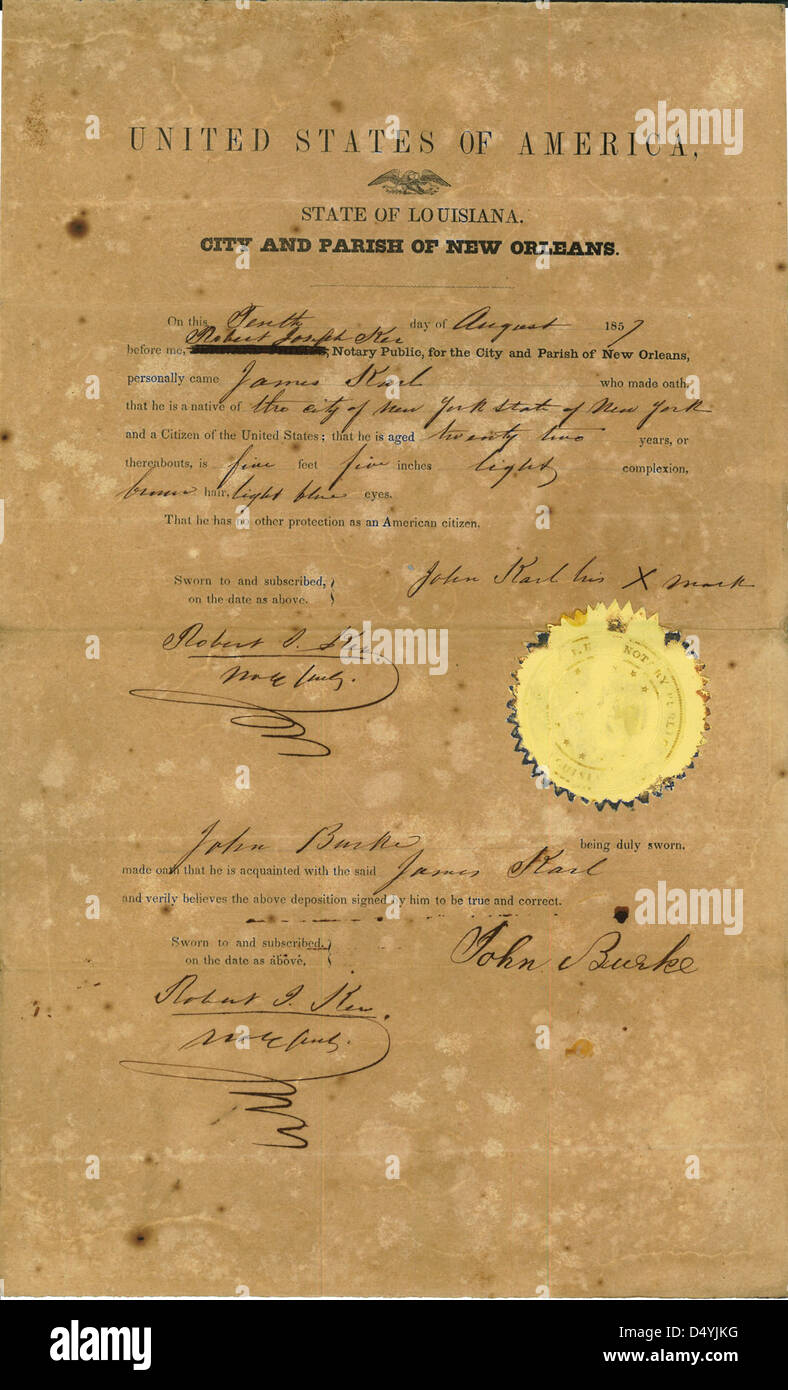 UNITED STATES OF AMERICA,
STATE OF LOUISIANA.
CITY AND PARISH OF NEW ORLEANS.
On this Tenth day of August 1857
Robert Joseph Ker
before me, Notary Public, for the City and Parish of New Orleans,
personally came James Karl who made oath,
that he is a native of the city of New York State of New York
and a Citizen of the United States; that he is aged twenty two years, or
thereabouts, is five feet five inches light complexion,
brown hair, light blue eyes.
That he has no other protection as an American citizen.
Sworn to and subscribed,
on the date as above.
John Karl his X mark
Robert J. Ker
Not Pub.
NOTARY PUBLIC
John Burke being duly sworn,
made oath that he is acquainted with the said James Karl
and verily believes the above deposition signed by him to be true and correct.
Sworn to and subscribed,
on the date as above,
John Burke
Robert J. Ker.
Not Pub.
alamy
alamy
alamy
Image ID: D4YJKG
www.alamy.com